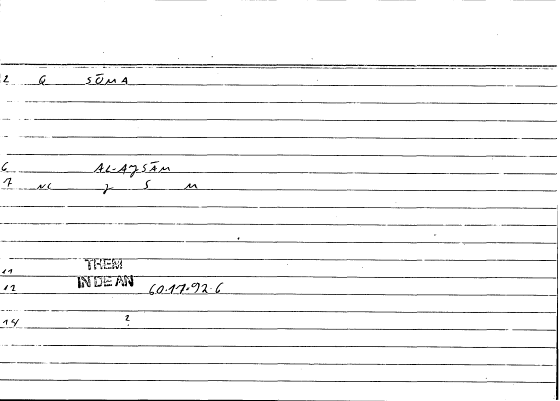 2 G SŌMA
6 AL-AǧSĀM
7 NC ǧ S M
11 THEM
12 INDEAN 60.17.92.6
14 2